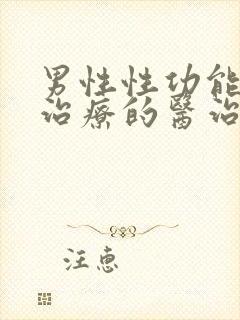 男性性功能
治療的醫治
注惠